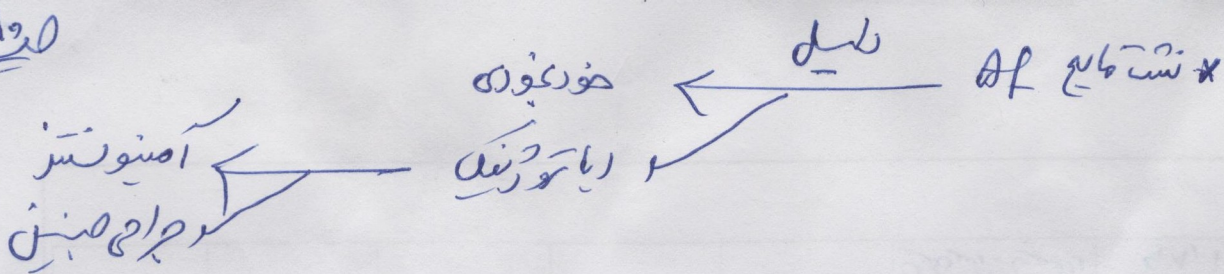 * نشت مایع AF
دلیل
خودبخودی
ایاتروژنیک
آمنیوسنتز
جراحی جنین